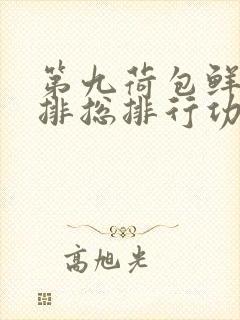 第九荷包鲜
排总排行功
高旭光